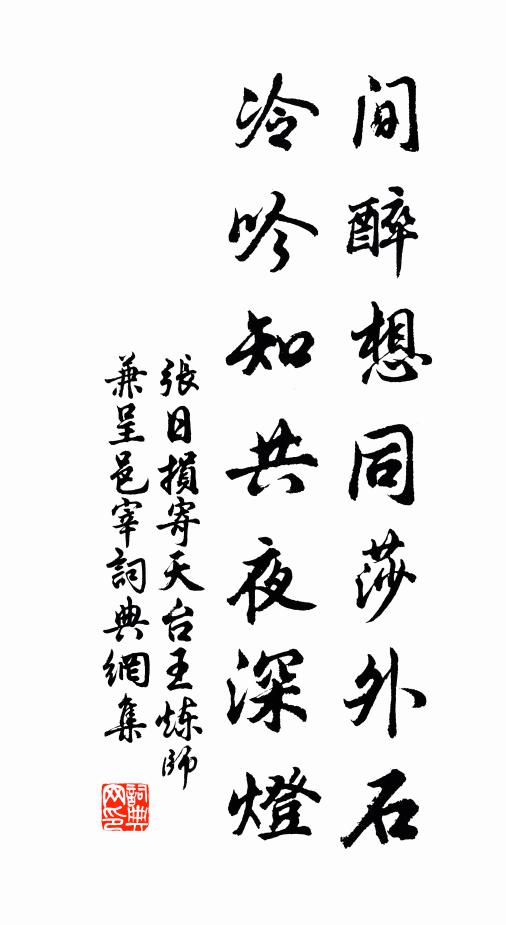 间醉想同莎外石
冷吟知共夜深燈
張日損寄天台王炼師
兼呈邑宰詞典網集
詞典网印